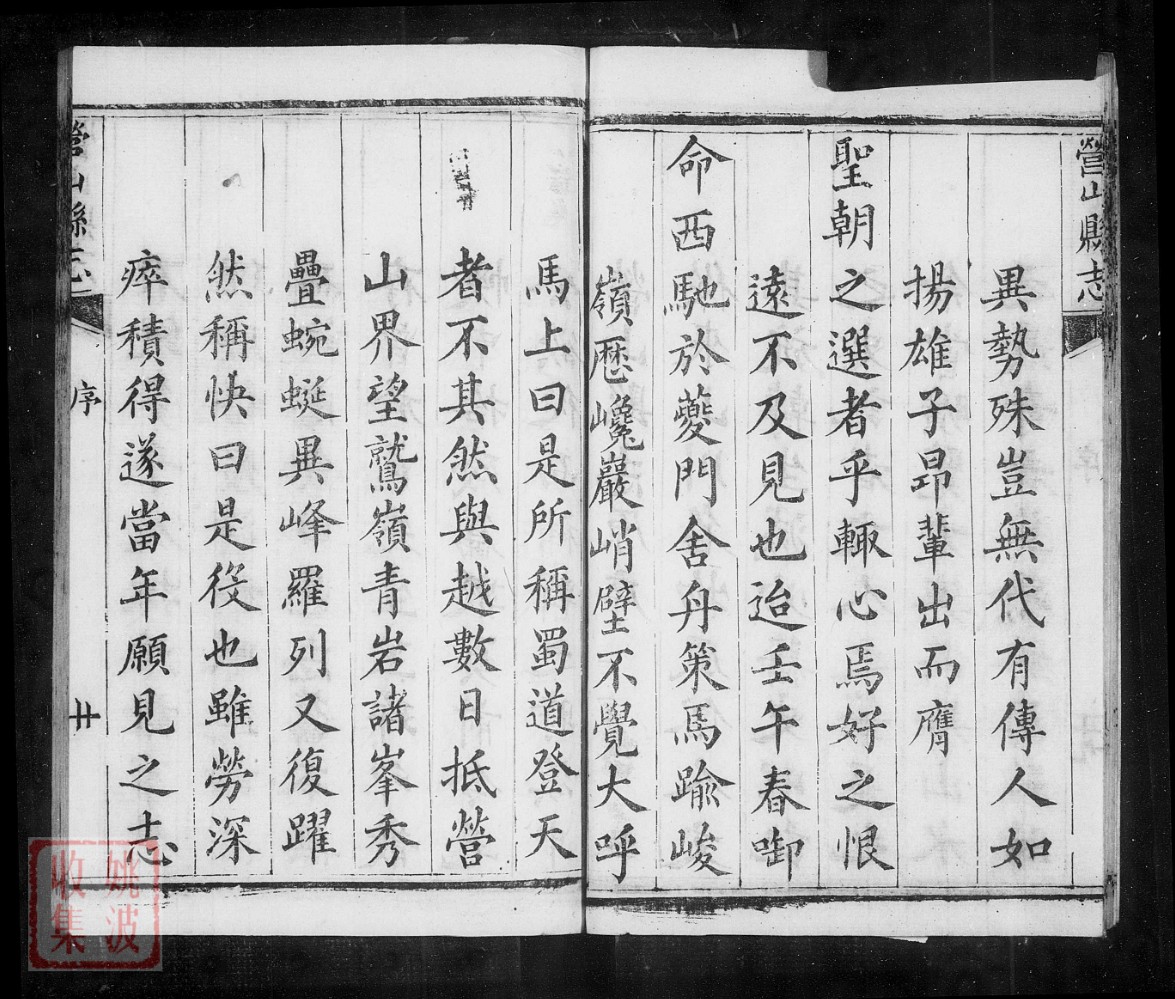 營山縣志
異勢殊豈無代有傳人如
揚雄子昂輩出而膺
聖朝之選者乎輙心焉好之恨
遠不及見也迨壬午春啣
命西馳於夔門舍舟策馬踰峻
嶺歷巉巖峭壁不覺大呼
馬上曰是所稱蜀道登天
者不其然與越數日抵營
山界望鷲嶺青岩諸峯秀
疊蜿蜒異峰羅列又復躍
然稱快曰是役也雖勞深
瘁積得遂當年願見之志
營山縣志
序
廿
姚波
收集